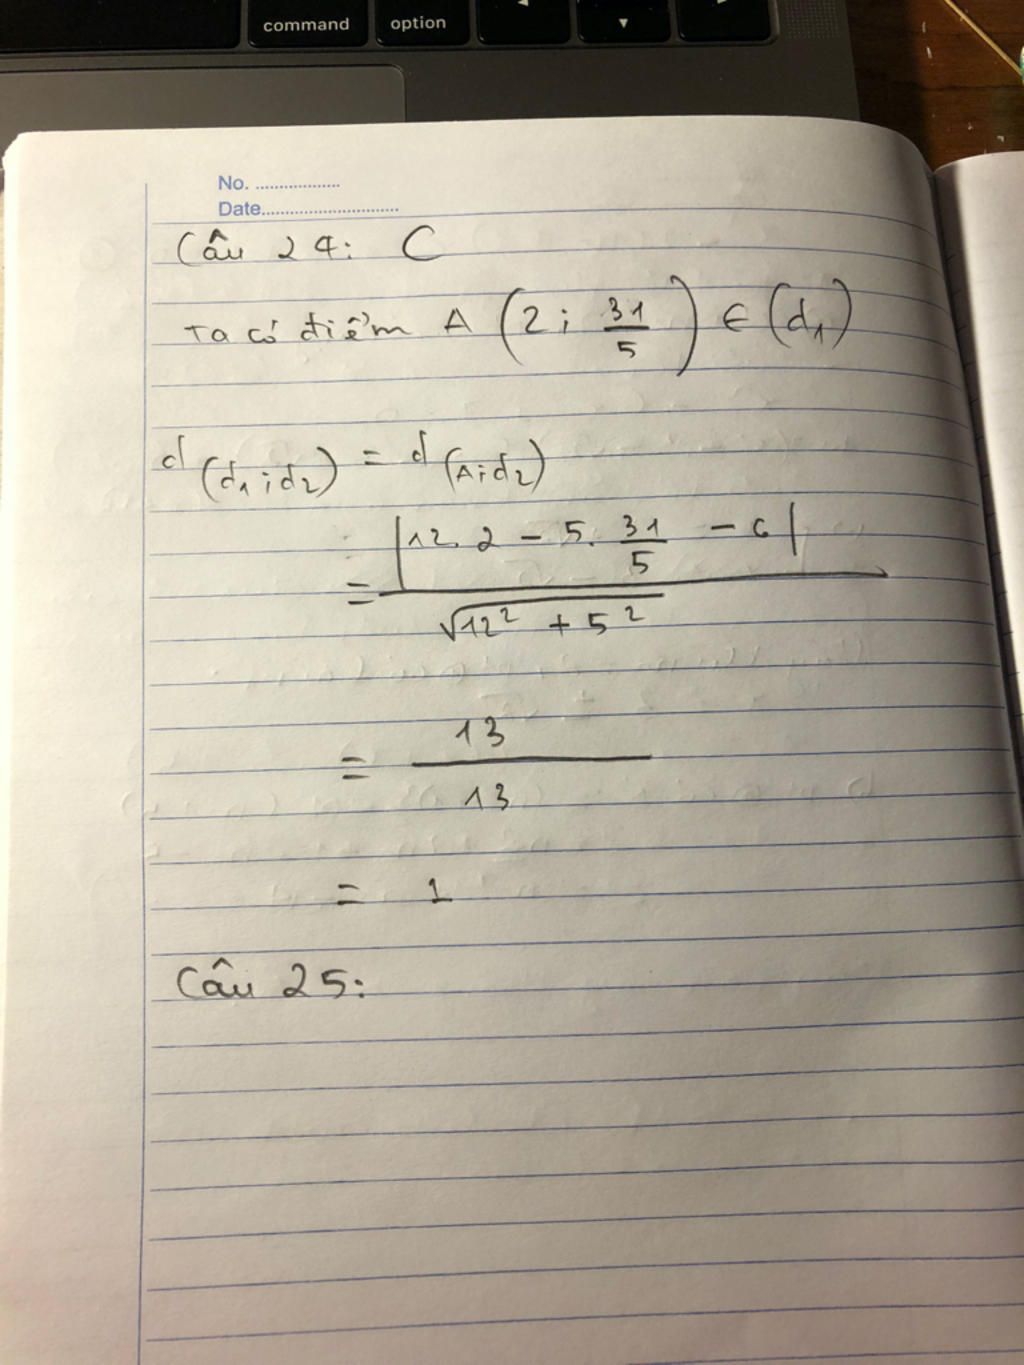 command option
No. ..................
Date..............................
Câu 24: C
Ta có điểm A (2; 31/5) ∈ (d₁)
d(d₁; d₂) = d(A; d₂)
= |12. 2 - 5. 31/5 - 6| / √12² + 5²
= 13/13
= 1
Câu 25: